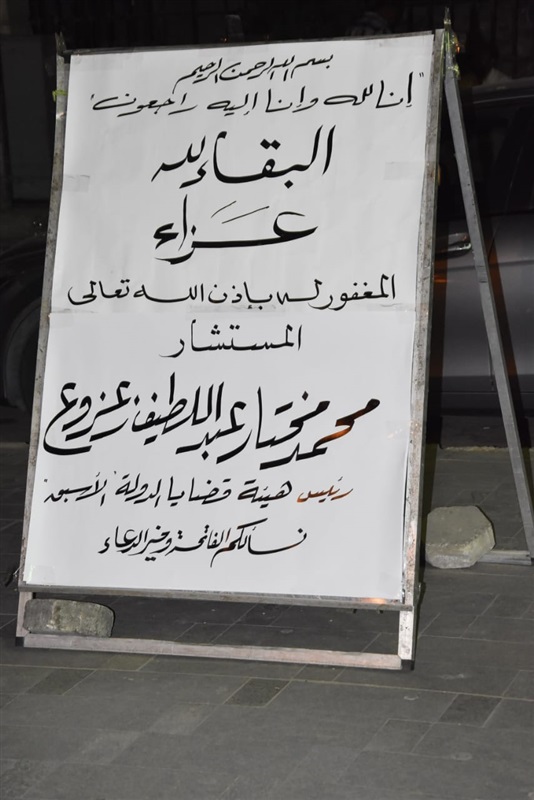 بسم الله الرحمن الرحيم
"إنا لله وإنا إليه راجعون"
البقاء لله
عزاء
المغفور له بإذن الله تعالى
المستشار
محمد مختار عبد اللطيف زعزوع
رئيس هيئة قضايا الدولة "الأسبق"
نسألكم الفاتحة وخير الدعاء